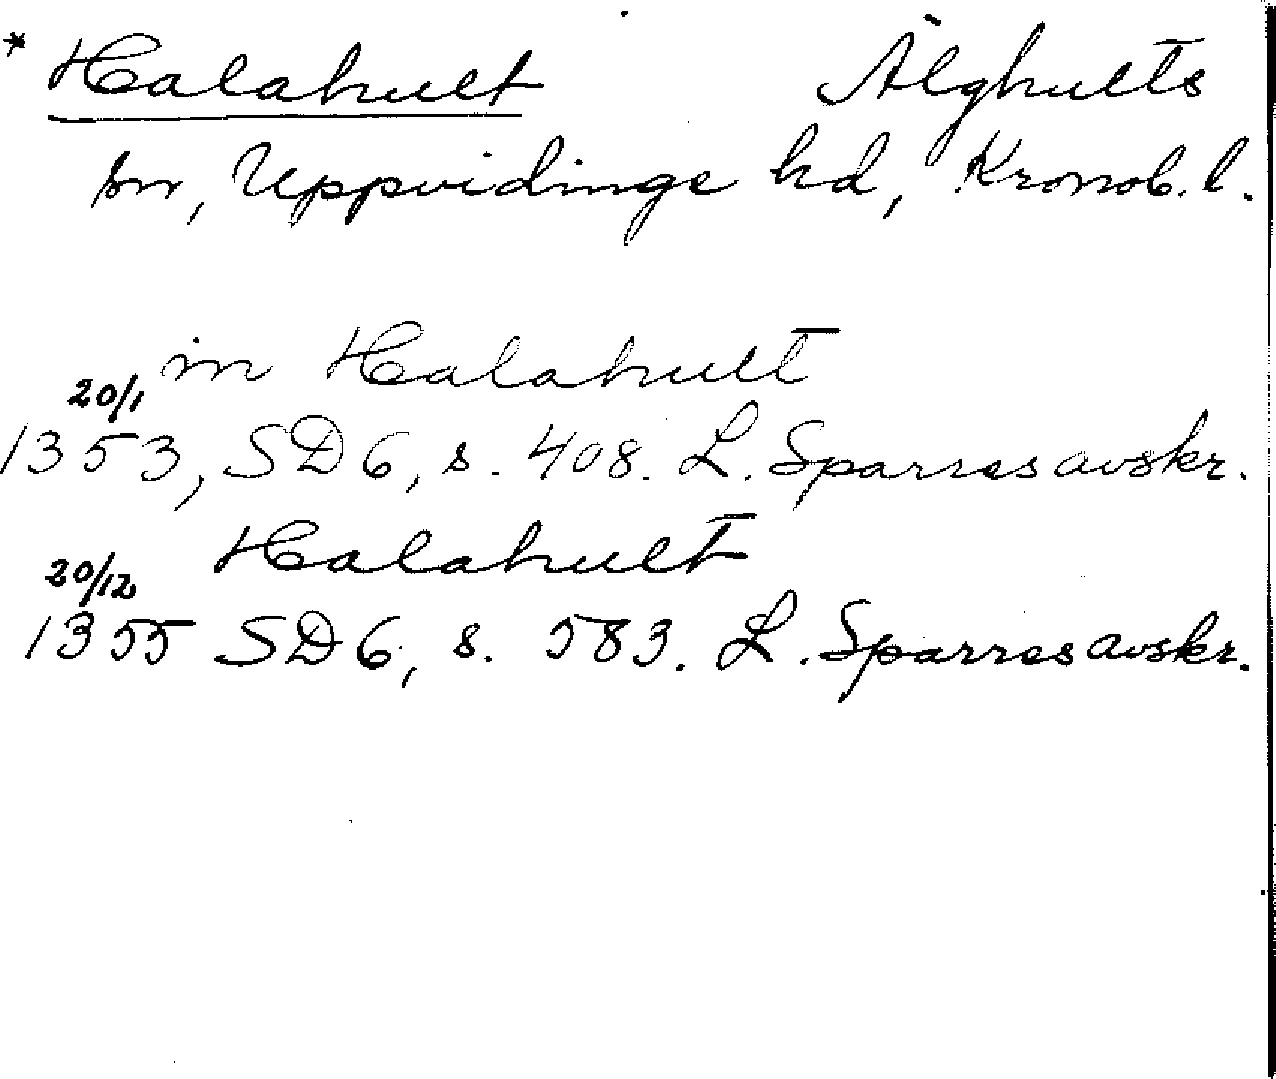 * Halahult Älghults
sn, Uppvidinge hd, Kronob. l.
in Halahult
20/1
1353, SD 6, s. 408. L. Sparres avskr.
Halahult
20/12
1355 SD 6, s. 583. L. Sparres avskr.